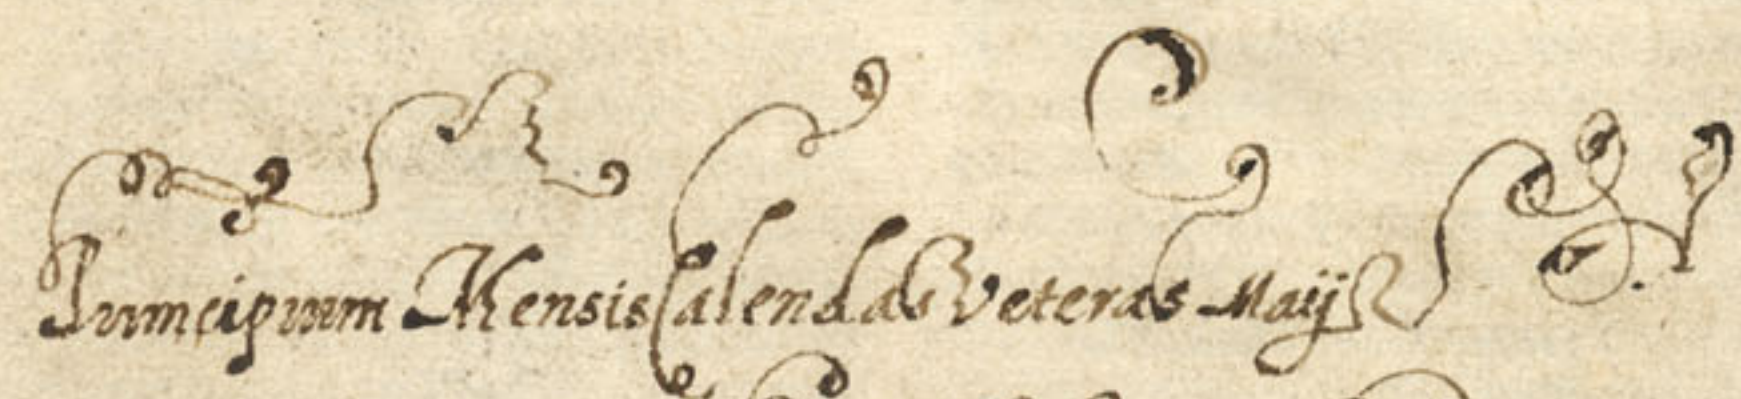 Principium Mensis Calendas Veteras Maij